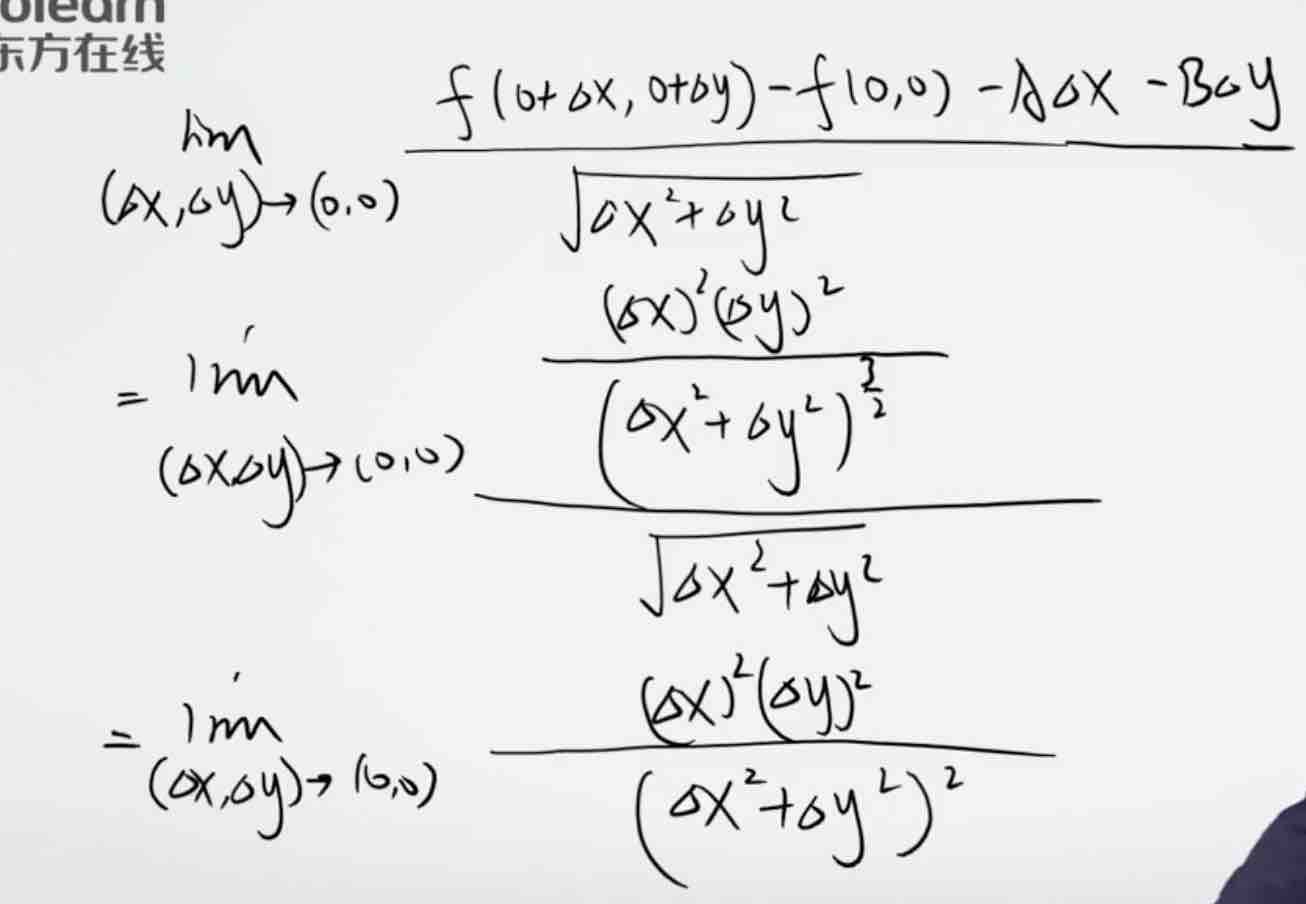 olearn
东方在线
lim (Δx,Δy)→(0,0) f(0+Δx,0+Δy)-f(0,0)-AΔx-BΔy / √(Δx²+Δy²)
= lim (Δx,Δy)→(0,0) (Δx)²(Δy)² / (Δx²+Δy²)^(3/2) / √(Δx²+Δy²)
= lim (Δx,Δy)→(0,0) (Δx)²(Δy)² / (Δx²+Δy²)²